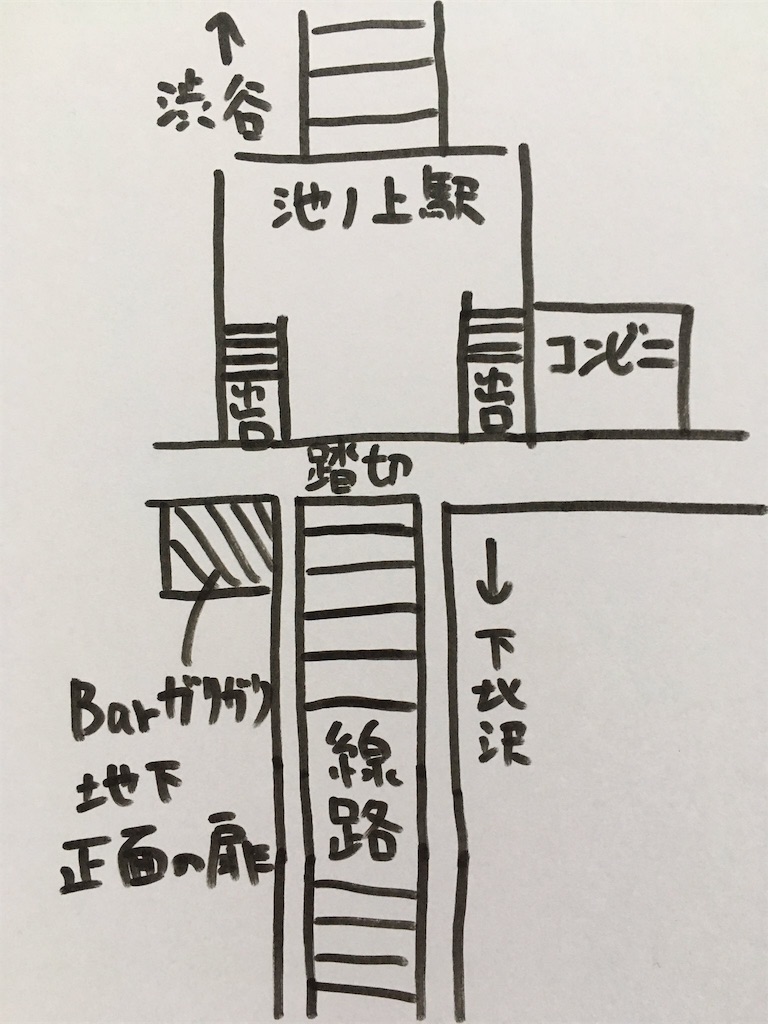 ↑
渋谷
池ノ上駅
出口
出口
コンビニ
踏切
↓
下北沢
Barガリガリ
地下
正面の扉
線路